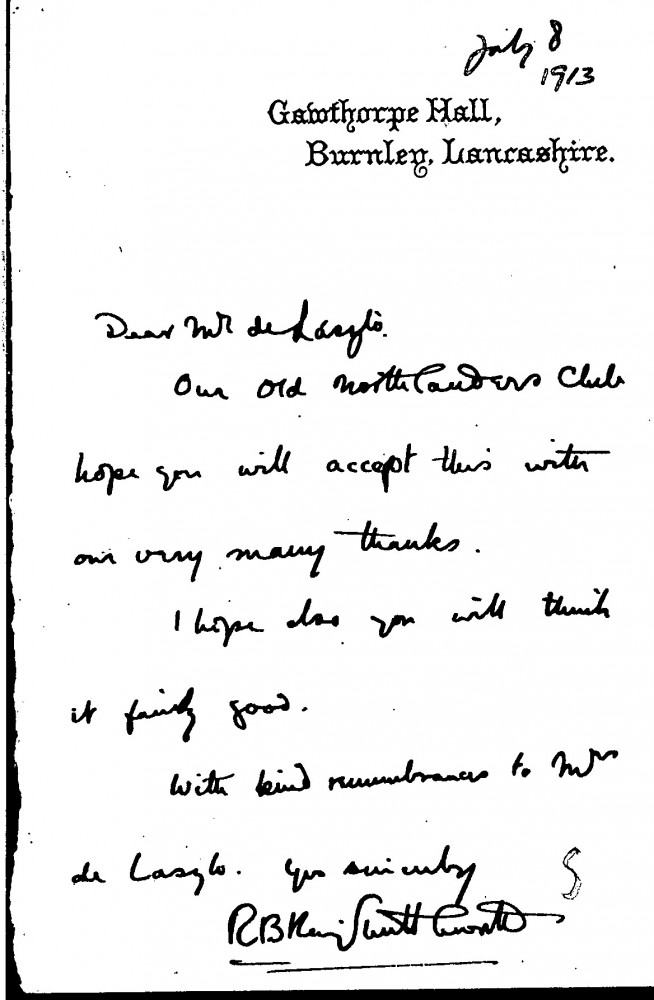 July 8
1913
Gawthorpe Hall,
Burnley, Lancashire.
Dear Mr de László.
Our Old Northlanders Club
hope you will accept this with
our very many thanks.
I hope also you will think
it fairly good.
With kind remembrances to Mrs
de Laszlo. Yrs sincerely
RB Kay Shuttleworth